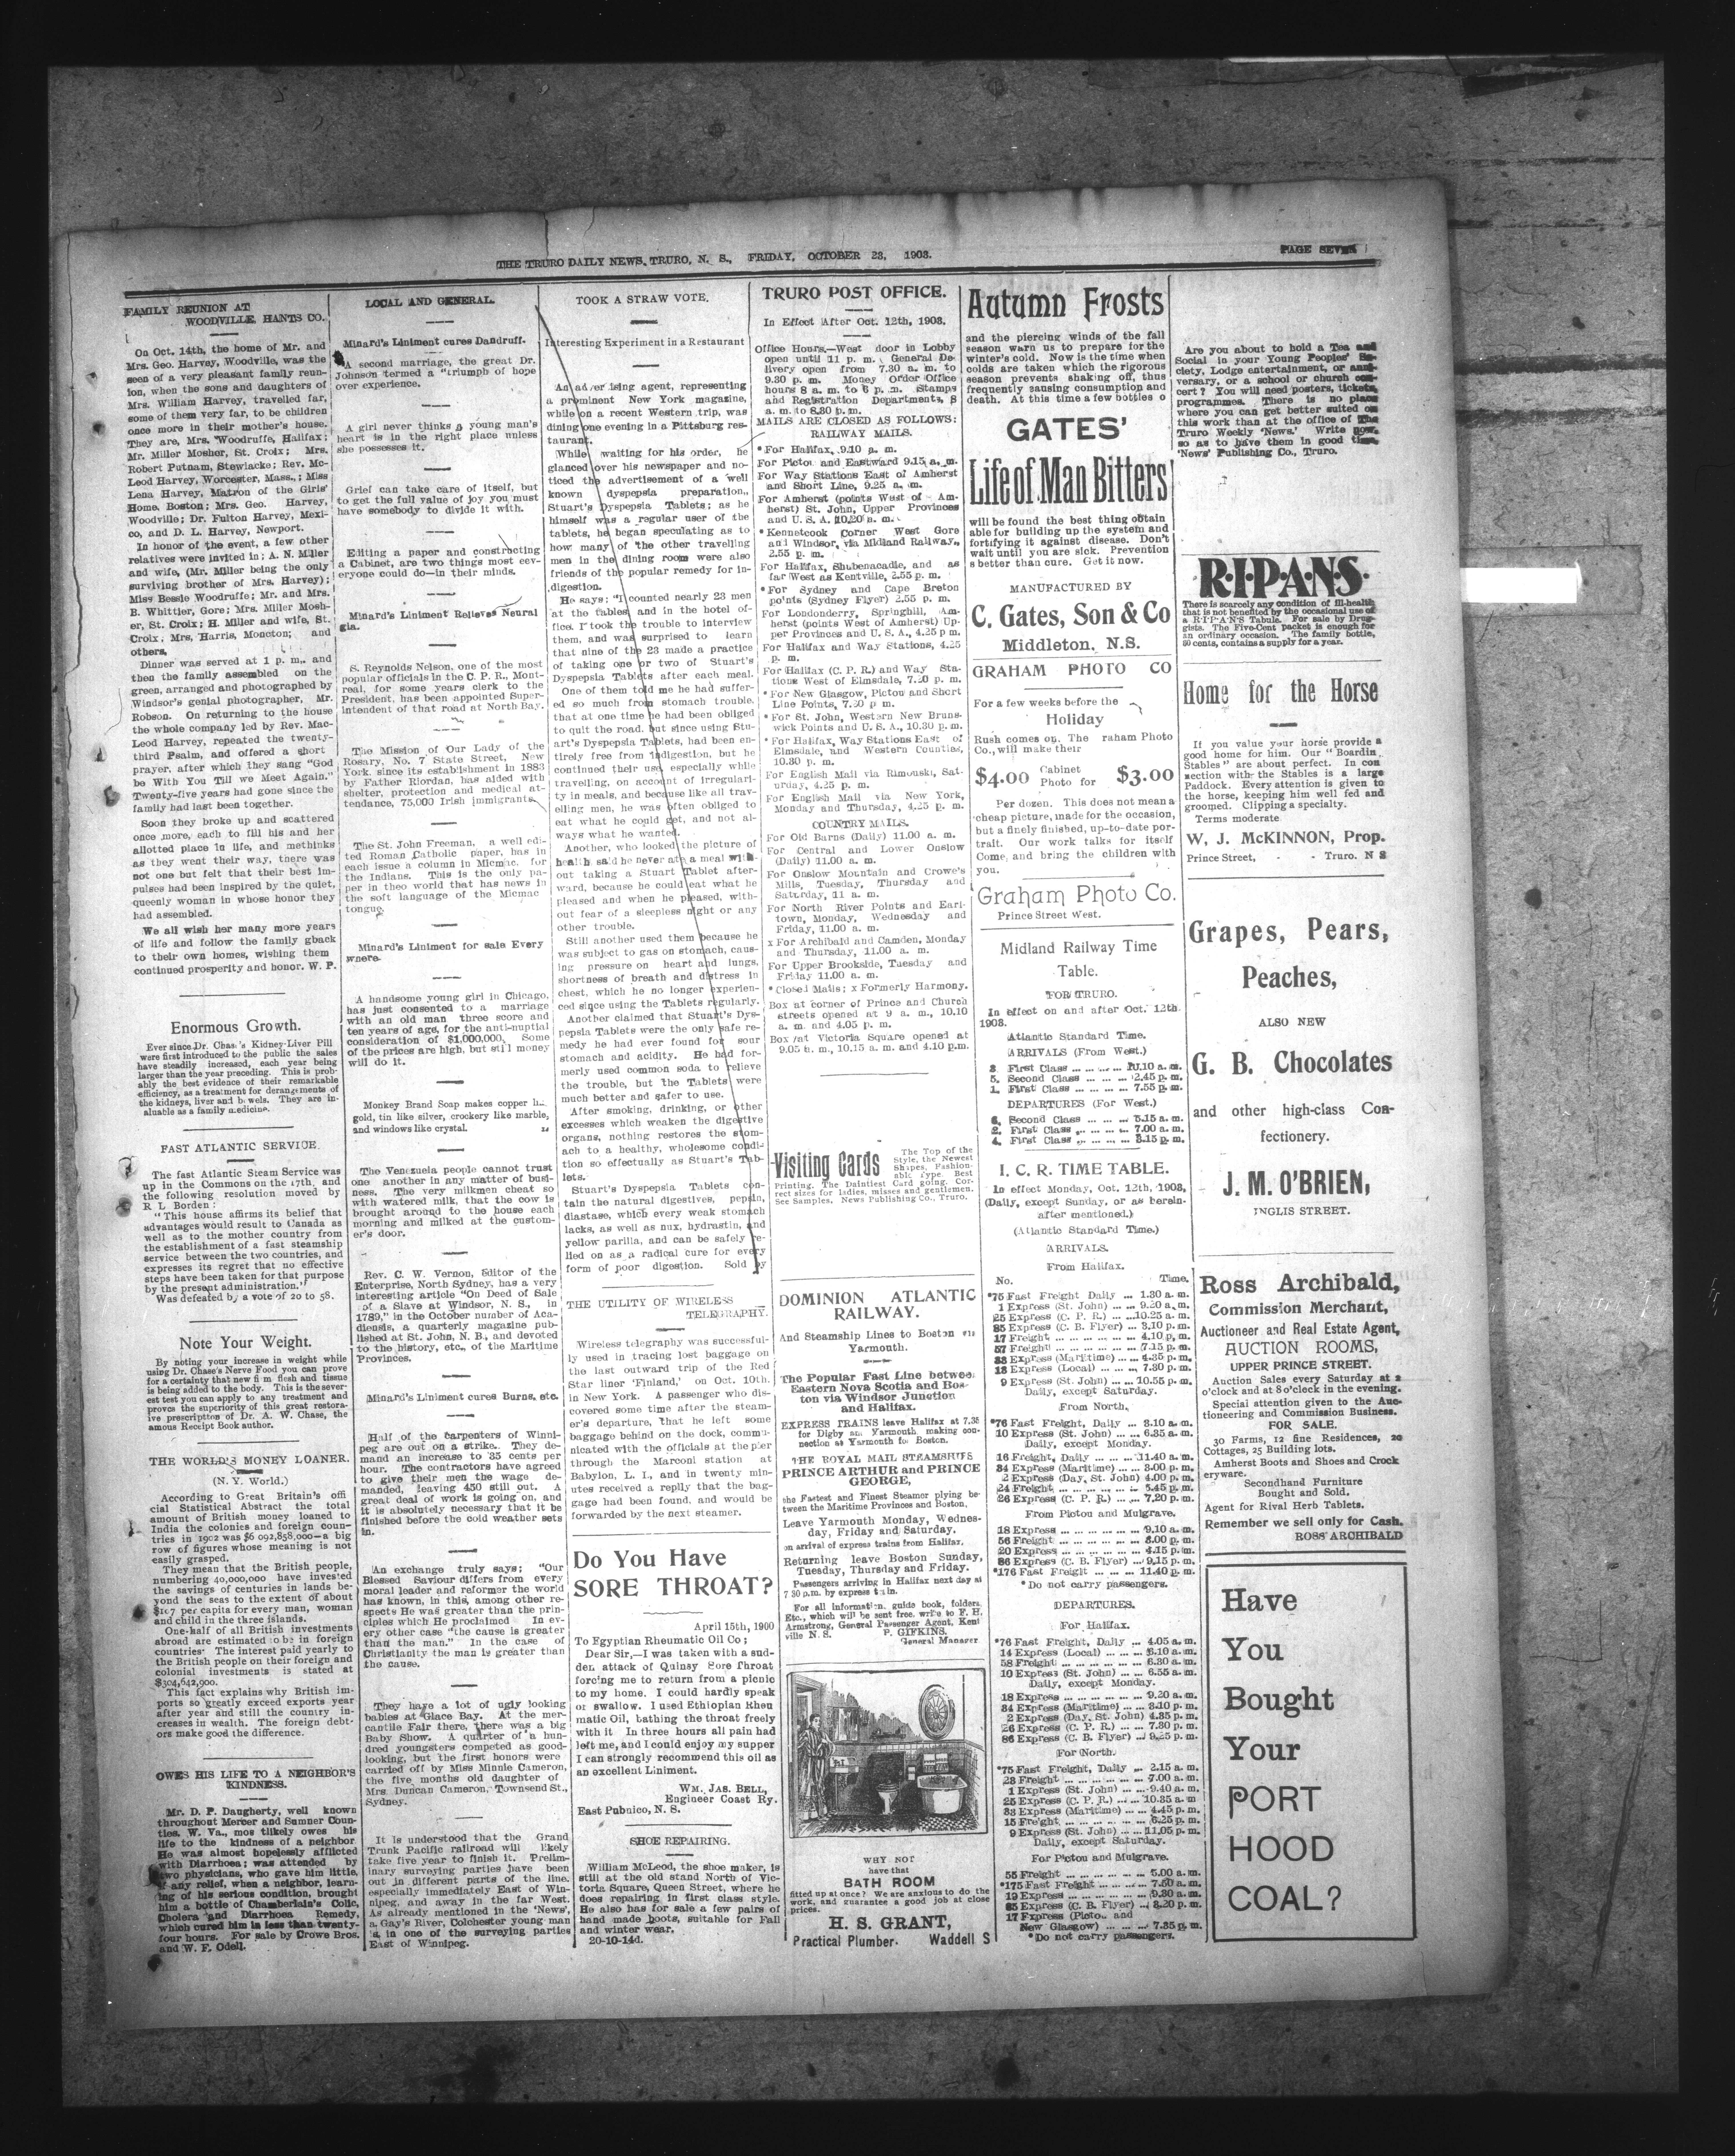 THE TRURO DAILY NEWS, TRURO, N. S., FRIDAY, OCTOBER 23, 1903.
PAGE SEVEN
FAMILY REUNION AT
WOODVILLE, HANTS CO.
On Oct. 14th, the home of Mr. and
Mrs. Geo. Harvey, Woodville, was the
seen of a very pleasant family reun-
ion, when the sons and daughters of
Mrs. William Harvey, travelled far,
some of them very far, to be children
once more in their mother's house.
They are, Mrs. Woodruffe, Halifax;
Mr. Miller Mosher, St. Croix; Mrs.
Robert Putnam, Stewiacke; Rev. Mc-
Leod Harvey, Worcester, Mass.; Miss
Lena Harvey, Matron of the Girls'
Home, Boston; Mrs. Geo. Harvey,
Woodville; Dr. Fulton Harvey, Mexi-
co, and D. L. Harvey, Newport.
In honor of the event, a few other
relatives were invited in; A. N. Miller
and wife, (Mr. Miller being the only
surviving brother of Mrs. Harvey);
Miss Bessie Woodruffe; Mr. and Mrs.
B. Whittier, Gore; Mrs. Miller Mosh-
er, St. Croix; H. Miller and wife, St.
Croix, Mrs, Harris, Moncton; and
others.
Dinner was served at 1 p. m., and
then the family assembled on the
green, arranged and photographed by
Windsor's genial photographer, Mr.
Robson. On returning to the house
the whole company led by Rev. Mac-
Leod Harvey, repeated the twenty-
third Psalm, and offered a short
prayer, after which they sang "God
be With You Till we Meet Again."
Twenty-five years had gone since the
family had last been together.
Soon they broke up and scattered
once more, each to fill his and her
allotted place in life, and methinks
as they went their way, there was
not one but felt that their best im-
pulses had been inspired by the quiet,
queenly woman in whose honor they
had assembled.
We all wish her many more years
of life and follow the family gback
to their own homes, wishing them
continued prosperity and honor. W. P.
Enormous Growth.
Ever since Dr. Chase's Kidney-Liver Pill
were first introduced to the public the sales
have steadily increased, each year being
larger than the year preceding. This is prob-
ably the best evidence of their remarkable
efficiency, as a treatment for derangements of
the kidneys, liver and bowels. They are in-
aluable as a family medicine.
FAST ATLANTIC SERVICE.
The fast Atlantic Steam Service was
up in the Commons on the 17th, and
the following resolution moved by
R L Borden:
"This house affirms its belief that
advantages would result to Canada as
well as to the mother country from
the establishment of a fast steamship
service between the two countries, and
expresses its regret that no effective
steps have been taken for that purpose
by the present administration."
Was defeated by a vote of 20 to 58.
Note Your Weight.
By noting your increase in weight while
using Dr. Chase's Nerve Food you can prove
for a certainty that new firm flesh and tissue
is being added to the body. This is the sever-
est test you can apply to any treatment and
proves the superiority of this great restora-
ive prescription of Dr. A. W. Chase, the
amous Receipt Book author.
THE WORLD'S MONEY LOANER.
(N. Y. World.)
According to Great Britain's offi
cial Statistical Abstract the total
amount of British money loaned to
India the colonies and foreign coun-
tries in 1902 was $6 092,858,000—a big
row of figures whose meaning is not
easily grasped.
They mean that the British people,
numbering 40,000,000 have invested
the savings of centuries in lands be-
yond the seas to the extent of about
$107 per capita for every man, woman
and child in the three islands.
One-half of all British investments
abroad are estimated to be in foreign
countries. The interest paid yearly to
the British people on their foreign and
colonial investments is stated at
$304,642,900.
This fact explains why British im-
ports so greatly exceed exports year
after year and still the country in-
creases in wealth. The foreign debt-
ors make good the difference.
OWES HIS LIFE TO A NEIGHBOR'S
KINDNESS.
Mr. D. P. Daugherty, well known
throughout Mercer and Sumner Coun-
ties, W. Va., mos tlikely owes his
life to the kindness of a neighbor.
He was almost hopelessly afflicted
with Diarrhoea; was attended by
two physicians, who gave him little,
if any relief, when a neighbor, learn-
ing of his serious condition, brought
him a bottle of Chamberlain's Colic,
Cholera and Diarrhoea Remedy,
which cured him in less than twenty-
four hours. For sale by Crowe Bros.
and W. F. Odell.
LOCAL AND GENERAL.
Minard's Liniment cures Dandruff.
A second marriage, the great Dr.
Johnson termed a "triumph of hope
over experience.
A girl never thinks a young man's
heart is in the right place unless
she possesses it.
Grief can take care of itself, but
to get the full value of joy you must
have somebody to divide it with.
Editing a paper and constructing
a Cabinet, are two things most eev-
eryone could do—in their minds.
Minard's Liniment Relieves Neural
gia.
S. Reynolds Nelson, one of the most
popular officials in the C. P. R., Mont-
real, for some years clerk to the
President, has been appointed Super-
intendent of that road at North Bay.
The Mission of Our Lady of the
Rosary, No. 7 State Street, New
York, since its establishment in 1883
by Father Riordan, has aided with
shelter, protection and medical at-
tendance, 75,000 Irish immigrants.
The St. John Freeman, a well edi-
ted Roman Catholic paper, has in
each issue a column in Micmac, for
the Indians. This is the only pa-
per in theo world that has news in
the soft language of the Micmac
tongue.
Minard's Liniment for sale Every
where.
A handsome young girl in Chicago,
has just consented to a marriage
with an old man three score and
ten years of age, for the anti-nuptial
consideration of $1,000,000. Some
of the prices are high, but still money
will do it.
Monkey Brand Soap makes copper li
gold, tin like silver, crockery like marble,
and windows like crystal.
The Venezuela people cannot trust
one another in any matter of busi-
ness. The very milkmen cheat so
with watered milk, that the cow is
brought around to the house each
morning and milked at the custom-
er's door.
Rev. C. W. Vernon, Editor of the
Enterprise, North Sydney, has a very
interesting article "On Deed of Sale
of a Slave at Windsor, N. S., in
1789," in the October number of Aca-
diensis, a quarterly magazine pub-
lished at St. John, N. B., and devoted
to the history, etc., of the Maritime
Provinces.
Minard's Liniment cures Burns, etc.
Half of the carpenters of Winni-
peg are out on a strike. They de-
mand an increase to 35 cents per
hour. The contractors have agreed
to give their men the wage de-
manded, leaving 450 still out. A
great deal of work is going on, and
it is absolutely necessary that it be
finished before the cold weather sets
in.
An exchange truly says: "Our
Blessed Saviour differs from every
moral leader and reformer the world
has known, in this, among other re-
spects He was greater than the prin-
ciples which He proclaimed. In ev-
ery other case "the cause is greater
than the man." In the case of
Christianity the man is greater than
the cause.
They have a lot of ugly looking
babies at Glace Bay. At the mer-
cantile Fair there, there was a big
Baby Show. A quarter of a hun-
dred youngsters competed as good-
looking, but the first honors were
carried off by Miss Minnie Cameron,
the five months old daughter of
Mrs. Duncan Cameron, Townsend St.,
Sydney.
It is understood that the Grand
Trunk Pacific railroad will likely
take five year to finish it. Prelim-
inary surveying parties have been
out in different parts of the line,
especially immediately East of Win-
nipeg, and away in the far West.
As already mentioned in the 'News',
a Gay's River, Colchester young man
is in one of the surveying parties
East of Winnipeg.
TOOK A STRAW VOTE.
Interesting Experiment in a Restaurant
An advertising agent, representing
a prominent New York magazine,
while on a recent Western trip, was
dining one evening in a Pittsburg res-
taurant.
While waiting for his order, he
glanced over his newspaper and no-
ticed the advertisement of a well
known dyspepsia preparation,
Stuart's Dyspepsia Tablets; as he
himself was a regular user of the
tablets, he began speculating as to
how many of the other travelling
men in the dining room were also
friends of the popular remedy for in-
digestion.
He says: "I counted nearly 23 men
at the tables and in the hotel of-
fice. I took the trouble to interview
them, and was surprised to learn
that nine of the 23 made a practice
of taking one or two of Stuart's
Dyspepsia Tablets after each meal.
One of them told me he had suffer-
ed so much from stomach trouble,
that at one time he had been obliged
to quit the road, but since using Stu-
art's Dyspepsia Tablets, had been en-
tirely free from indigestion, but he
continued their use, especially while
travelling, on account of irregulari-
ty in meals, and because like all trav-
elling men, he was often obliged to
eat what he could get, and not al-
ways what he wanted.
Another, who looked the picture of
health, said he never ate a meal with-
out taking a Stuart Tablet after-
ward, because he could eat what he
pleased and when he pleased, with-
out fear of a sleepless night or any
other trouble.
Still another used them because he
was subject to gas on stomach, caus-
ing pressure on heart and lungs,
shortness of breath and distress in
chest, which he no longer experien-
ced since using the Tablets regularly.
Another claimed that Stuart's Dys-
pepsia Tablets were the only safe re-
medy he had ever found for sour
stomach and acidity. He had for-
merly used common soda to relieve
the trouble, but the Tablets were
much better and safer to use.
After smoking, drinking, or other
excesses which weaken the digestive
organs, nothing restores the stom-
ach to a healthy, wholesome condi-
tion so effectually as Stuart's Tab-
lets.
Stuart's Dyspepsia Tablets con-
tain the natural digestives, pepsin,
diastase, which every weak stomach
lacks, as well as nux, hydrastin, and
yellow parilla, and can be safely re-
lied on as a radical cure for every
form of poor digestion. Sold by
THE UTILITY OF WIRELESS
TELEGRAPHY.
Wireless telegraphy was successful-
ly used in tracing lost baggage on
the last outward trip of the Red
Star liner 'Finland,' on Oct. 10th.
in New York. A passenger who dis-
covered some time after the steam-
er's departure, that he left some
baggage behind on the dock, commu-
nicated with the officials at the pier
through the Marconi station at
Babylon, L. I., and in twenty min-
utes received a replly that the bag-
gage had been found, and would be
forwarded by the next steamer.
Do You Have
SORE THROAT?
April 15th, 1900
To Egyptian Rheumatic Oil Co;
Dear Sir,—I was taken with a sud-
den attack of Quinsy Sore Throat
forcing me to return from a picnic
to my home. I could hardly speak
or swallow. I used Ethiopian Rheu
matic Oil, bathing the throat freely
with it In three hours all pain had
left me, and I could enjoy my supper
I can strongly recommend this oil as
an excellent Liniment.
WM. JAS. BELL,
Engineer Coast Ry.
East Pubnico, N. S.
SHOE REPAIRING.
William McLeod, the shoe maker, is
still at the old stand North of Vic-
toria Square, Queen Street, where he
does repairing in first class style.
He also has for sale a few pairs of
hand made boots, suitable for Fall
and winter wear.
20-10-14d.
TRURO POST OFFICE.
In Effect After Oct. 12th, 1903.
Office Hours.—West door in Lobby
open until 11 p. m. General De-
livery open from 7.30 a. m. to
9.30 p. m. Money Order Office
hours 8 a. m. to 6 p. m. Stamps
and Registration Departments, 8
a. m. to 8.30 p. m.
MAILS ARE CLOSED AS FOLLOWS:
RAILWAY MAILS.
*For Halifax, 9.10 p. m.
For Pictou and Eastward 9.15 a. m.
For Way Stations East of Amherst
and Short Line, 9.25 a. m.
For Amherst (points West of Am-
herst) St. John, Upper Provinces
and U. S. A. 10.20 p. m.
*Kennetcook Corner West Gore
and Windsor, via Midland Railway,
2.55 p. m.
For Halifax, Shubenacadie, and as
far West as Kentville, 2.55 p. m.
*For Sydney and Cape Breton
points (Sydney Flyer) 2.55 p. m.
For Londonderry, Springhill, Am-
herst (points West of Amherst) Up-
per Provinces and U. S. A., 4.25 p m.
For Halifax and Way Stations, 4.25
p. m.
For Halifax (C. P. R.) and Way Sta-
tions West of Elmsdale, 7.20 p. m.
*For New Glasgow, Pictou and Short
Line Points, 7.50 p m.
*For St. John, Western New Bruns-
wick Points and U. S. A., 10.30 p. m.
*For Halifax, Way Stations East of
Elmsdale, and Western Counties,
10.30 p. m.
For English Mail via Rimouski, Sat-
urday, 4.25 p. m.
For English Mail via New York,
Monday and Thursday, 4.25 p. m.
COUNTRY MAILS.
For Old Barns (Daily) 11.00 a. m.
For Central and Lower Onslow
(Daily) 11.00 a. m.
For Onslow Mountain and Crowe's
Mills, Tuesday, Thursday and
Saturday, 11 a. m.
For North River Points and Earl-
town, Monday, Wednesday and
Friday, 11.00 a. m.
x For Archibald and Camden, Monday
and Thursday, 11.00 a. m.
For Upper Brookside, Tuesday and
Friday 11.00 a. m.
*Closed Mails; x Formerly Harmony.
Box at corner of Prince and Church
streets opened at 9 a. m., 10.10
a. m. and 4.05 p. m.
Box at Victoria Square opened at
9.05 a. m., 10.15 a. m. and 4.10 p.m.
Visiting Cards
The Top of the
Style, the Newest
Shapes, Fashion-
able Type Best
Printing. The Daintiest Card going. Cor-
rect sizes for ladies, misses and gentlemen.
See Samples. News Publishing Co., Truro.
DOMINION ATLANTIC
RAILWAY.
And Steamship Lines to Boston via
Yarmouth.
The Popular Fast Line between
Eastern Nova Scotia and Bos-
ton via Windsor Junction
and Halifax.
EXPRESS TRAINS leave Halifax at 7.35
for Digby and Yarmouth making con-
nection at Yarmouth for Boston.
THE ROYAL MAIL STEAMSHIPS
PRINCE ARTHUR and PRINCE
GEORGE,
the Fastest and Finest Steamer plying be-
tween the Maritime Provinces and Boston.
Leave Yarmouth Monday, Wednes-
day, Friday and Saturday.
on arrival of express trains from Halifax.
Returning leave Boston Sunday,
Tuesday, Thursday and Friday.
Passengers arriving in Halifax next day at
7 30 p.m. by express train.
For all information, guide book, folders
Etc., which will be sent free. write to F. H.
Armstrong, General Passenger Agent. Kent
ville N. S. P. GIFKINS.
General Manager
WHY NOT
have that
BATH ROOM
fitted up at once? We are anxious to do the
work, and guarantee a good job at close
prices.
H. S. GRANT,
Practical Plumber. Waddell S
Autumn Frosts
and the piercing winds of the fall
season warn us to prepare for the
winter's cold. Now is the time when
colds are taken which the rigorous
season prevents shaking off, thus
frequently causing consumption and
death. At this time a few bottles o
GATES'
Life of Man Bitters
will be found the best thing obtain
able for building up the system and
fortifying it against disease. Don't
wait until you are sick. Prevention
s better than cure. Get it now.
MANUFACTURED BY
C. Gates, Son & Co
Middleton, N.S.
GRAHAM PHOTO CO
For a few weeks before the
Holiday
Rush comes on. The raham Photo
Co., will make their
$4.00 Cabinet Photo for $3.00
Per dozen. This does not mean a
cheap picture, made for the occasion,
but a finely finished, up-to-date por-
trait. Our work talks for itself
Come, and bring the children with
you.
Graham Photo Co.
Prince Street West.
Midland Railway Time
Table.
FOR TRURO.
In effect on and after Oct. 12th.
1903.
Atlantic Standard Time.
ARRIVALS (From West.)
3 First Class ... ... ... 10.10 a. m.
5. Second Class ... ... ... 2.45 p. m.
1. First Class ... ... ... 7.55 p. m.
DEPARTURES (For West.)
6. Second Class ... ... ... 5.15 a. m.
2. First Class ... ... ... 7.00 a. m.
4. First Class ... ... ... 3.15 p. m.
I. C. R. TIME TABLE.
In effect Monday, Oct. 12th, 1903,
(Daily, except Sunday, or as herein-
after mentioned.)
(Atlantic Standard Time.)
ARRIVALS.
From Halifax.
No. Time.
*75 Fast Freight Daily ... 1.30 a. m.
1 Express (St. John) ... ... 9.20 a. m.
25 Express (C. P. R.) ... ... 10.25 a. m.
85 Express (C. B. Flyer) ... 3.10 p. m.
17 Freight ... ... ... 4.10 p. m.
57 Freight ... ... ... 7.15 p. m.
33 Express (Maritime) ... ... 4.35 p. m.
13 Express (Local) ... ... 7.30 p. m.
9 Express (St. John) ... ... 10.55 p. m.
Daily, except Saturday.
From North.
*76 Fast Freight, Daily ... 3.10 a. m.
10 Express (St. John) ... ... 6.35 a. m.
Daily, except Monday.
16 Freight, Daily ... ... 11.40 a. m.
34 Express (Maritime) ... ... 3.00 p. m.
2 Express (Day, St. John) 4.00 p. m.
24 Freight ... ... ... 5.45 p. m.
26 Express (C. P. R.) ... ... 7.20 p. m.
From Pictou and Mulgrave.
18 Express ... ... ... 9.10 a. m.
56 Freight ... ... ... 3.00 p. m.
20 Express ... ... ... 4.15 p. m.
86 Express (C. B. Flyer) ... 9.15 p. m.
*176 Fast Freight ... ... 11.40 p. m.
*Do not carry passengers.
DEPARTURES.
For Halifax.
*76 Fast Freight, Daily ... 4.05 a. m.
14 Express (Local) ... ... 6.10 a. m.
58 Freight ... ... ... 6.30 a. m.
10 Express (St. John) ... ... 6.55 a. m.
Daily, except Monday.
18 Express ... ... ... 9.20 a. m.
34 Express (Maritime) ... ... 3.10 p. m.
2 Express (Day, St. John) 4.35 p. m.
26 Express (C. P. R.) ... ... 7.30 p. m.
86 Express (C. B. Flyer) ... 9.25 p. m.
For North.
*75 Fast Freight, Daily ... 2.15 a. m.
23 Freight ... ... ... 7.00 a. m.
1 Express (St. John) ... ... 9.40 a. m.
25 Express (C. P. R.) ... ... 10.35 a. m.
33 Express (Maritime) ... ... 4.45 p. m.
15 Freight ... ... ... 6.25 p. m.
9 Express (St. John) ... ... 11.05 p. m.
Daily, except Saturday.
For Pictou and Mulgrave.
55 Freight ... ... ... 5.00 a. m.
*175 Fast Freight ... ... 7.50 a. m.
19 Express ... ... ... 9.30 a. m.
85 Express (C. B. Flyer) ... 3.20 p. m.
17 Express (Pictou and
New Glasgow) ... ... ... 7.35 p. m.
*Do not carry passengers.
Are you about to hold a Tea and
Social in your Young Peoples' So-
ciety, Lodge entertainment, or anni-
versary, or a school or church con-
cert? You will need posters, tickets,
programmes. There is no place
where you can get better suited on
this work than at the office of The
Truro Weekly 'News.' Write now,
so as to have them in good time.
'News' Publishing Co., Truro.
R·I·P·A·N·S
There is scarcely any condition of ill-health
that is not benefited by the occasional use of
a R·I·P·A·N·S Tabule. For sale by Drug-
gists. The Five-Cent packet is enough for
an ordinary occasion. The family bottle,
60 cents, contains a supply for a year.
Home for the Horse
If you value your horse provide a
good home for him. Our "Boardin
Stables" are about perfect. In con
nection with the Stables is a large
Paddock. Every attention is given to
the horse, keeping him well fed and
groomed. Clipping a specialty.
Terms moderate
W. J. McKINNON, Prop.
Prince Street, - - Truro. N S
Grapes, Pears,
Peaches,
ALSO NEW
G. B. Chocolates
and other high-class Con-
fectionery.
J. M. O'BRIEN,
INGLIS STREET.
Ross Archibald,
Commission Merchant,
Auctioneer and Real Estate Agent,
AUCTION ROOMS,
UPPER PRINCE STREET.
Auction Sales every Saturday at 2
o'clock and at 8 o'clock in the evening.
Special attention given to the Auc-
tioneering and Commission Business.
FOR SALE.
30 Farms, 12 fine Residences, 20
Cottages, 25 Building lots.
Amherst Boots and Shoes and Crock
eryware.
Secondhand Furniture
Bought and Sold.
Agent for Rival Herb Tablets.
Remember we sell only for Cash.
ROSS ARCHIBALD
Have
You
Bought
Your
PORT
HOOD
COAL?